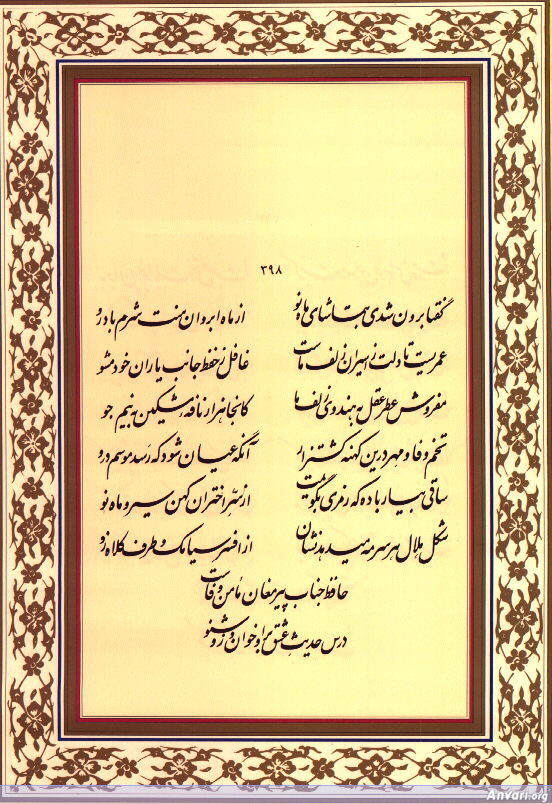 ۳۹۸
گفتا برون شدی بتماشای ماه نو از ماه ابروان منت شرم باد رو
عمریست تا دلت ز اسیران زلف ماست غافل ز حفظ جانب یاران خود مشو
مفروش عطر عقل به هندوی زلف ما کانجا هزار نافه مشکین به نیم جو
تخم وفا و مهر درین کهنه کشتزار آنگه عیان شود که رسد موسم درو
ساقی بیار باده که رمزی بگویمت از سر اختران کهن سیر و ماه نو
شکل هلال هر سر مه میدهد نشان از افسر سیامک و طرف کلاه زو
حافظ جناب پیر مغان مأمن وفاست
درس حدیث عشق برو خوان و زو شنو
Anvari.org